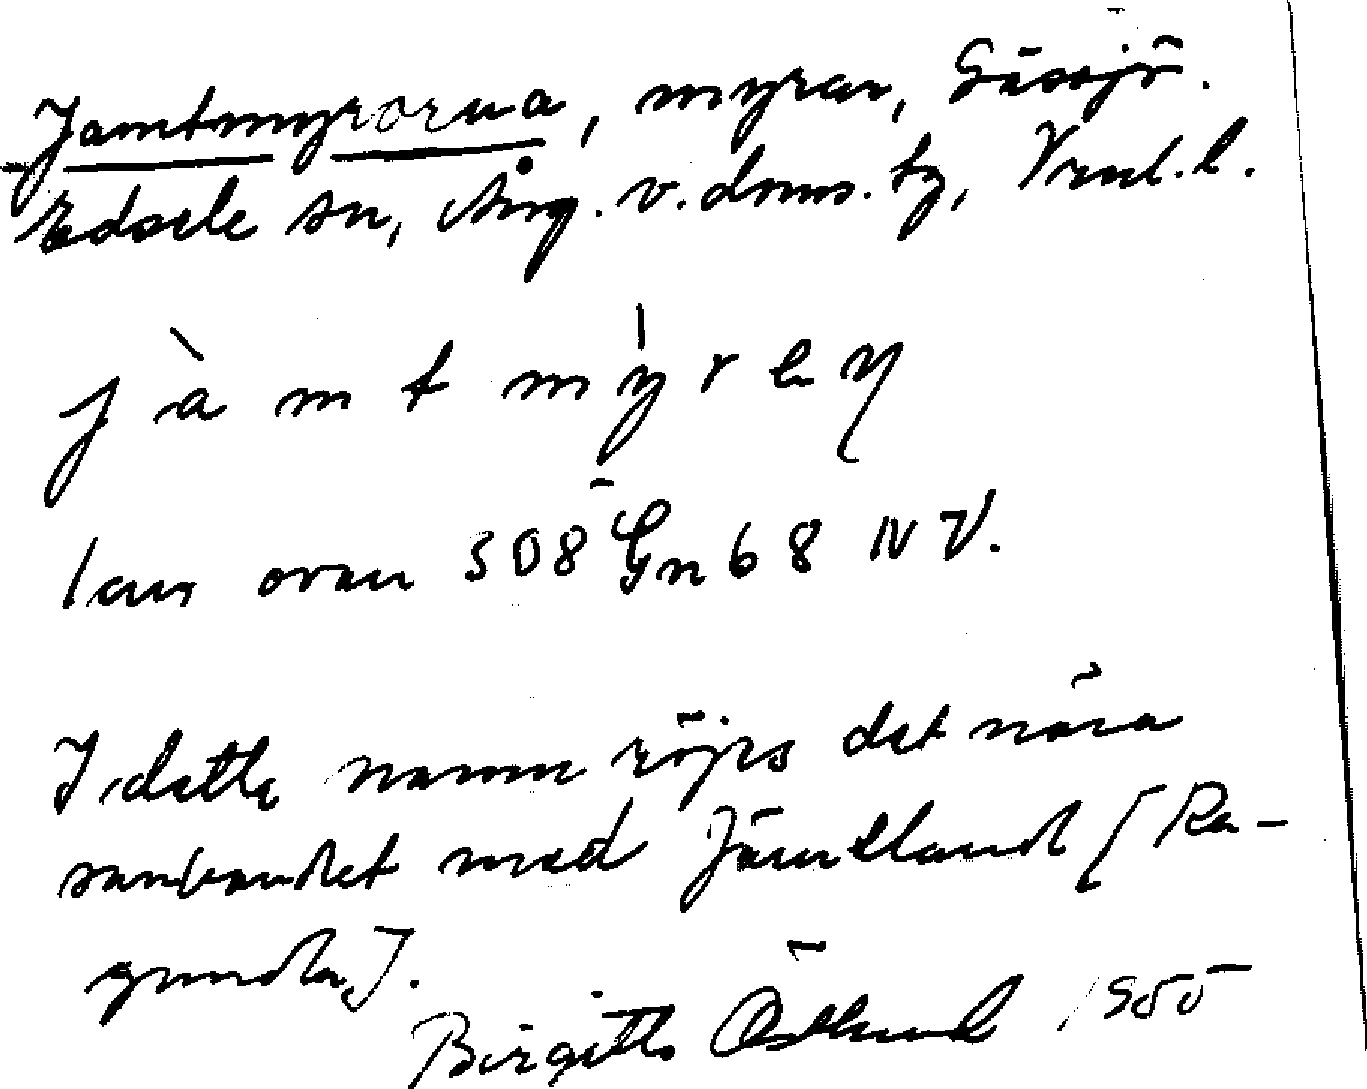 Jamtmyrorna, myrar, Gåssjö.
Edsele sn, Ång. v. doms. tg, Vnl. l.
j à m t m ý r e ŋ
ovan 508 Gn 68 NV.
I detta namn röjes det nära
sambandet med Jämtland [Ra-
gunda].
Birgitta Östlund 1955